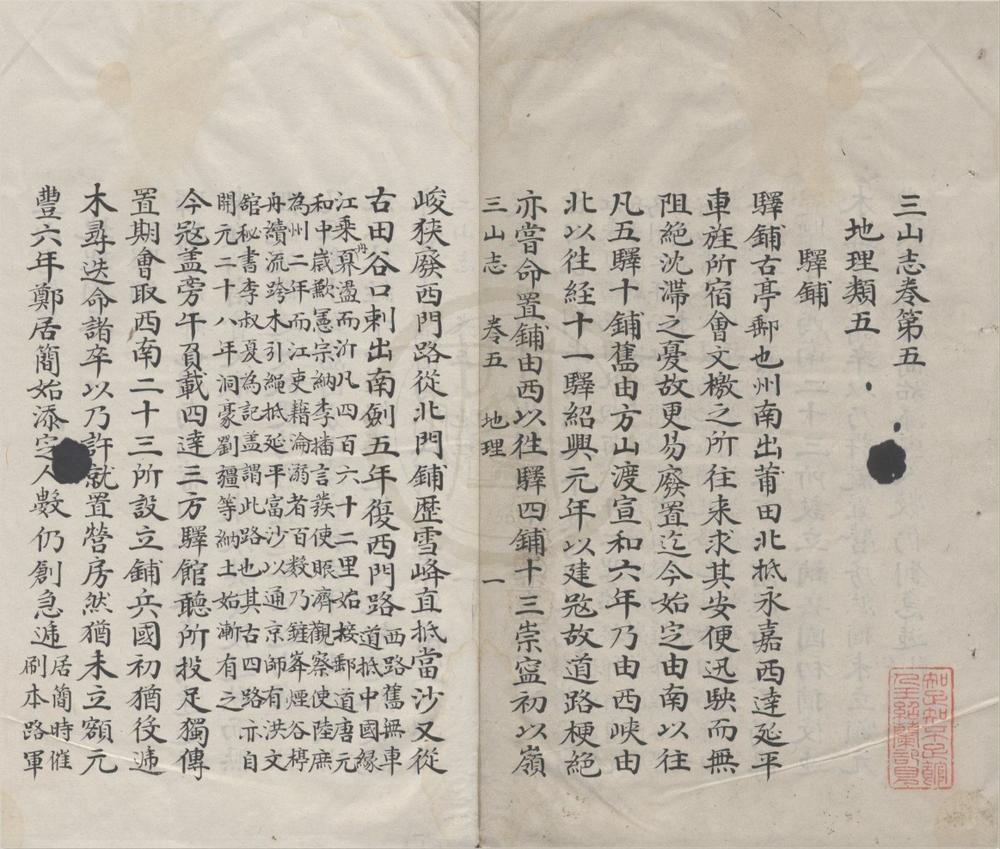 三山志卷第五
地理類五
驛鋪
驛鋪古亭郵也州南出莆田北抵永嘉西達延平
車旌所宿會文檄之所往来求其安便迅駛而無
阻絶沈滯之憂故更易廢置迄今始定由南以往
凡五驛十鋪舊由方山渡宣和六年乃由西峽由
北以往経十一驛紹興元年以建冦故道路梗絶
亦嘗命置鋪由西以往驛四鋪十三崇寍初以嶺
三山志 卷五 地理 一
峻狹廢西門路從北門鋪歷雪峰直抵當沙又從
古田谷口剌出南劍五年復西門路西路舊無車道抵中國緣
江乗舟暴盪而泝凡四百六十二里始接郵道唐元
和中歲歉憲宗納李播言發使賑濟觀察使陸庶
為州二年而江吏籍淪溺者百数乃鏟峯煙谷停
舟續流跨木引繩抵延平富沙以通京師有洪文
舘秘書李叔夏為記盖謂此路也其古四路亦自
開元二十八年洞豪劉疆等納土始漸有之
今冦盖旁午負載四達三方驛館聽所投足獨傳
置期會取西南二十三所設立鋪兵國初猶役逓
木尋迭命諸卒以乃許就置營房然猶未立額元
豐六年鄭居簡始添定人數仍創急逓居簡時催刷本路軍